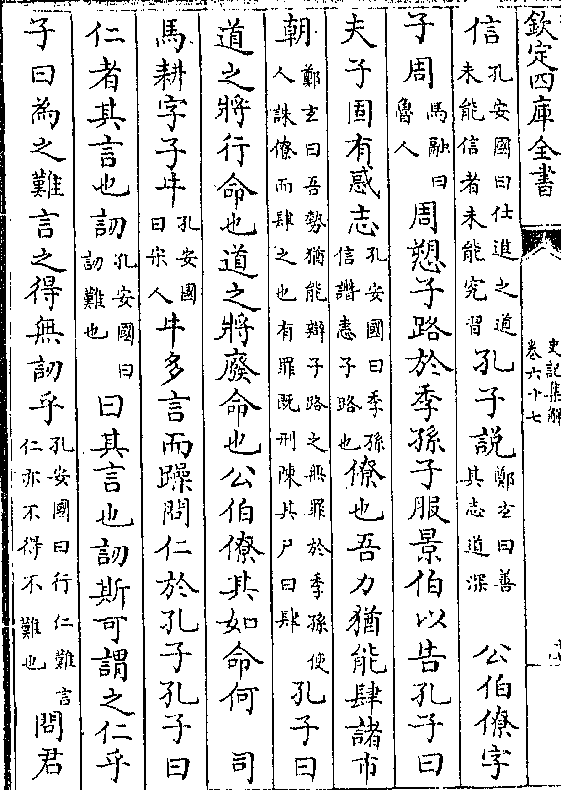 欽定四庫全書
史記集解
卷六十七
信孔安國曰仕進之道未能信者未能究習孔子說鄭玄曰善其志道深 公伯僚字
子周馬融曰魯人周愬子路於季孫子服景伯以告孔子曰
夫子固有惑志孔安國曰季孫信譖恚子路也僚也吾力猶能肆諸市
朝鄭玄曰吾勢猶能辯子路之無罪於季孫使人誅僚而肆之也有罪既刑陳其尸曰肆孔子曰
道之將行命也道之將廢命也公伯僚其如命何 司
馬耕字子牛孔安國曰宋人牛多言而躁問仁於孔子孔子曰
仁者其言也訒孔安國曰訒難也曰其言也訒斯可謂之仁乎
子曰為之難言之得無訒乎孔安國曰行仁難言仁亦不得不難也問君